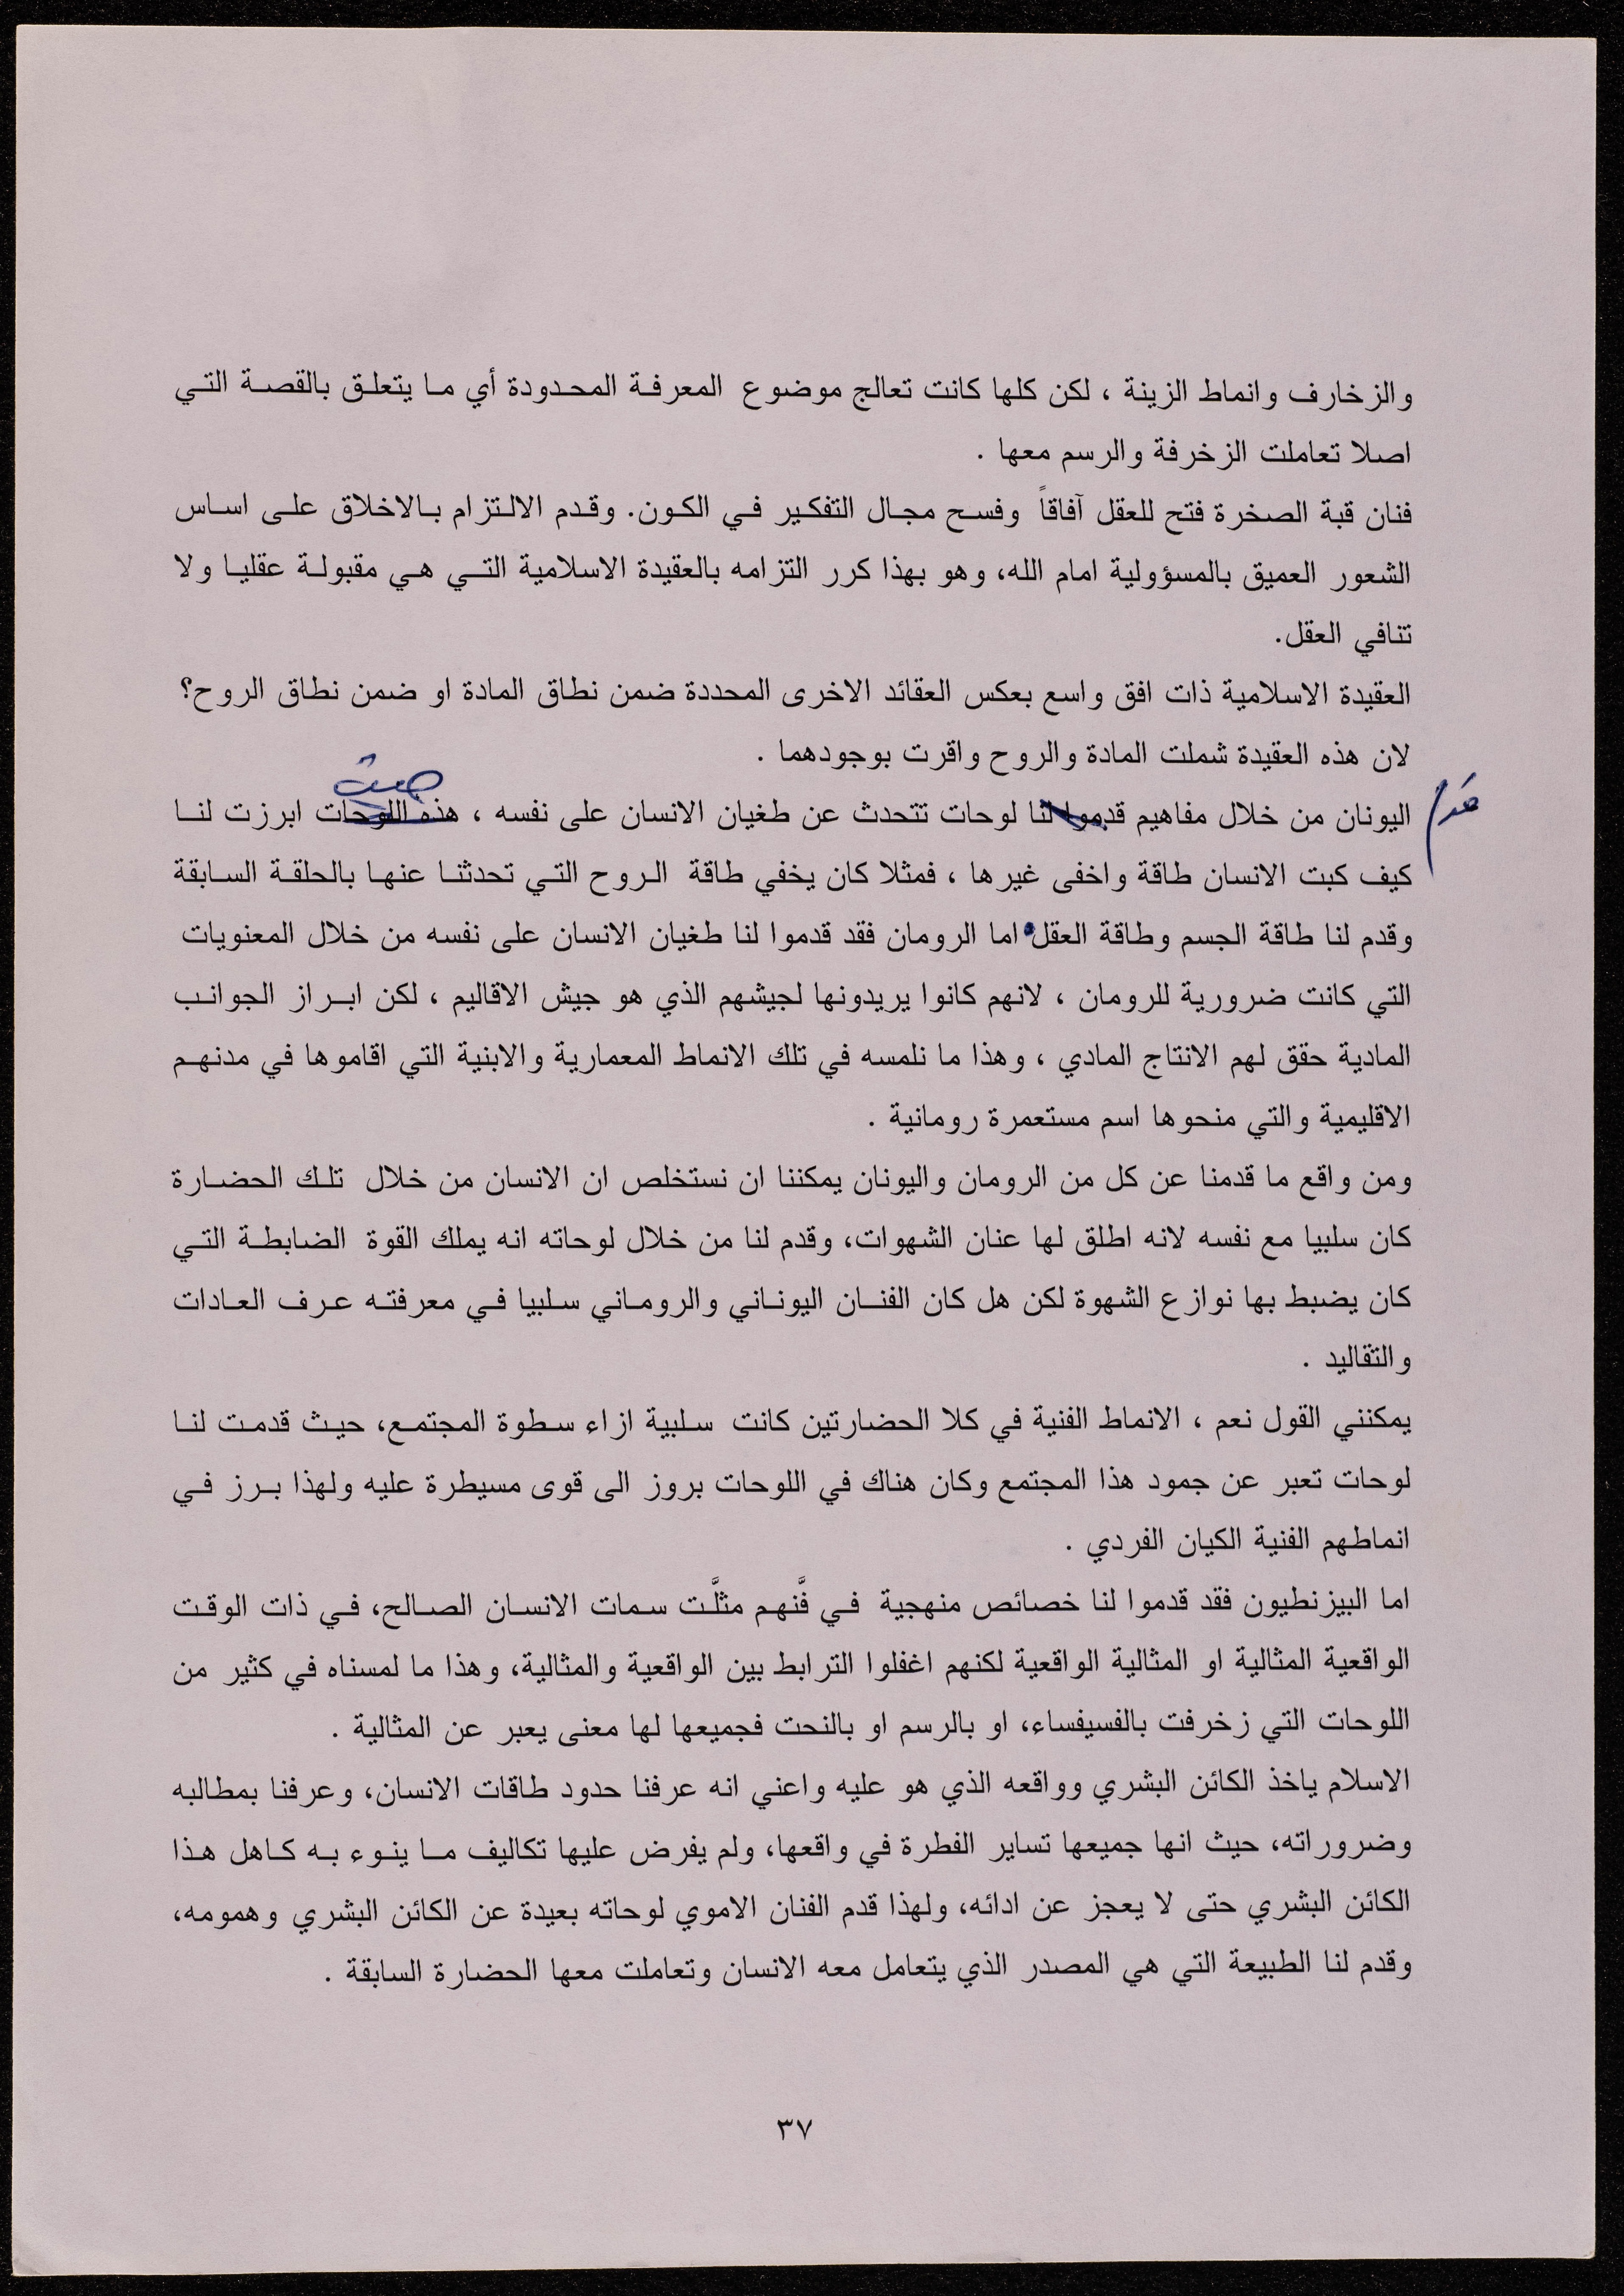 والزخارف وانماط الزينة ، لكن كلها كانت تعالج موضوع المعرفة المحدودة أي ما يتعلق بالقصة التي
اصلا تعاملت الزخرفة والرسم معها .
فنان قبة الصخرة فتح للعقل آفاقاً وفسح مجال التفكير في الكون. وقدم الالتزام بالاخلاق على اساس
الشعور العميق بالمسؤولية امام الله، وهو بهذا كرر التزامه بالعقيدة الاسلامية التي هي مقبولة عقليا ولا
تنافي العقل.
العقيدة الاسلامية ذات افق واسع بعكس العقائد الاخرى المحددة ضمن نطاق المادة او ضمن نطاق الروح؟
لان هذه العقيدة شملت المادة والروح واقرت بوجودهما .
حيث
قدم
اليونان من خلال مفاهيم قدموا لنا لوحات تتحدث عن طغيان الانسان على نفسه ، هذه اللوحات ابرزت لنا
كيف كبت الانسان طاقة واخفى غيرها ، فمثلا كان يخفي طاقة الروح التي تحدثنا عنها بالحلقة السابقة
وقدم لنا طاقة الجسم وطاقة العقل. اما الرومان فقد قدموا لنا طغيان الانسان على نفسه من خلال المعنويات
التي كانت ضرورية للرومان ، لانهم كانوا يريدونها لجيشهم الذي هو جيش الاقاليم ، لكن ابراز الجوانب
المادية حقق لهم الانتاج المادي ، وهذا ما نلمسه في تلك الانماط المعمارية والابنية التي اقاموها في مدنهم
الاقليمية والتي منحوها اسم مستعمرة رومانية .
ومن واقع ما قدمنا عن كل من الرومان واليونان يمكننا ان نستخلص ان الانسان من خلال تلك الحضارة
كان سلبيا مع نفسه لانه اطلق لها عنان الشهوات، وقدم لنا من خلال لوحاته انه يملك القوة الضابطة التي
كان يضبط بها نوازع الشهوة لكن هل كان الفنان اليوناني والروماني سلبيا في معرفته عرف العادات
والتقاليد .
يمكنني القول نعم ، الانماط الفنية في كلا الحضارتين كانت سلبية ازاء سطوة المجتمع، حيث قدمت لنا
لوحات تعبر عن جمود هذا المجتمع وكان هناك في اللوحات بروز الى قوى مسيطرة عليه ولهذا برز في
انماطهم الفنية الكيان الفردي .
اما البيزنطيون فقد قدموا لنا خصائص منهجية في فَّنهم مثلَّت سمات الانسان الصالح، في ذات الوقت
الواقعية المثالية او المثالية الواقعية لكنهم اغفلوا الترابط بين الواقعية والمثالية، وهذا ما لمسناه في كثير من
اللوحات التي زخرفت بالفسيفساء، او بالرسم او بالنحت فجميعها لها معنى يعبر عن المثالية .
الاسلام ياخذ الكائن البشري وواقعه الذي هو عليه واعني انه عرفنا حدود طاقات الانسان، وعرفنا بمطالبه
وضروراته، حيث انها جميعها تساير الفطرة في واقعها، ولم يفرض عليها تكاليف ما ينوء به كاهل هذا
الكائن البشري حتى لا يعجز عن ادائه، ولهذا قدم الفنان الاموي لوحاته بعيدة عن الكائن البشري وهمومه،
وقدم لنا الطبيعة التي هي المصدر الذي يتعامل معه الانسان وتعاملت معها الحضارة السابقة .
٣٧